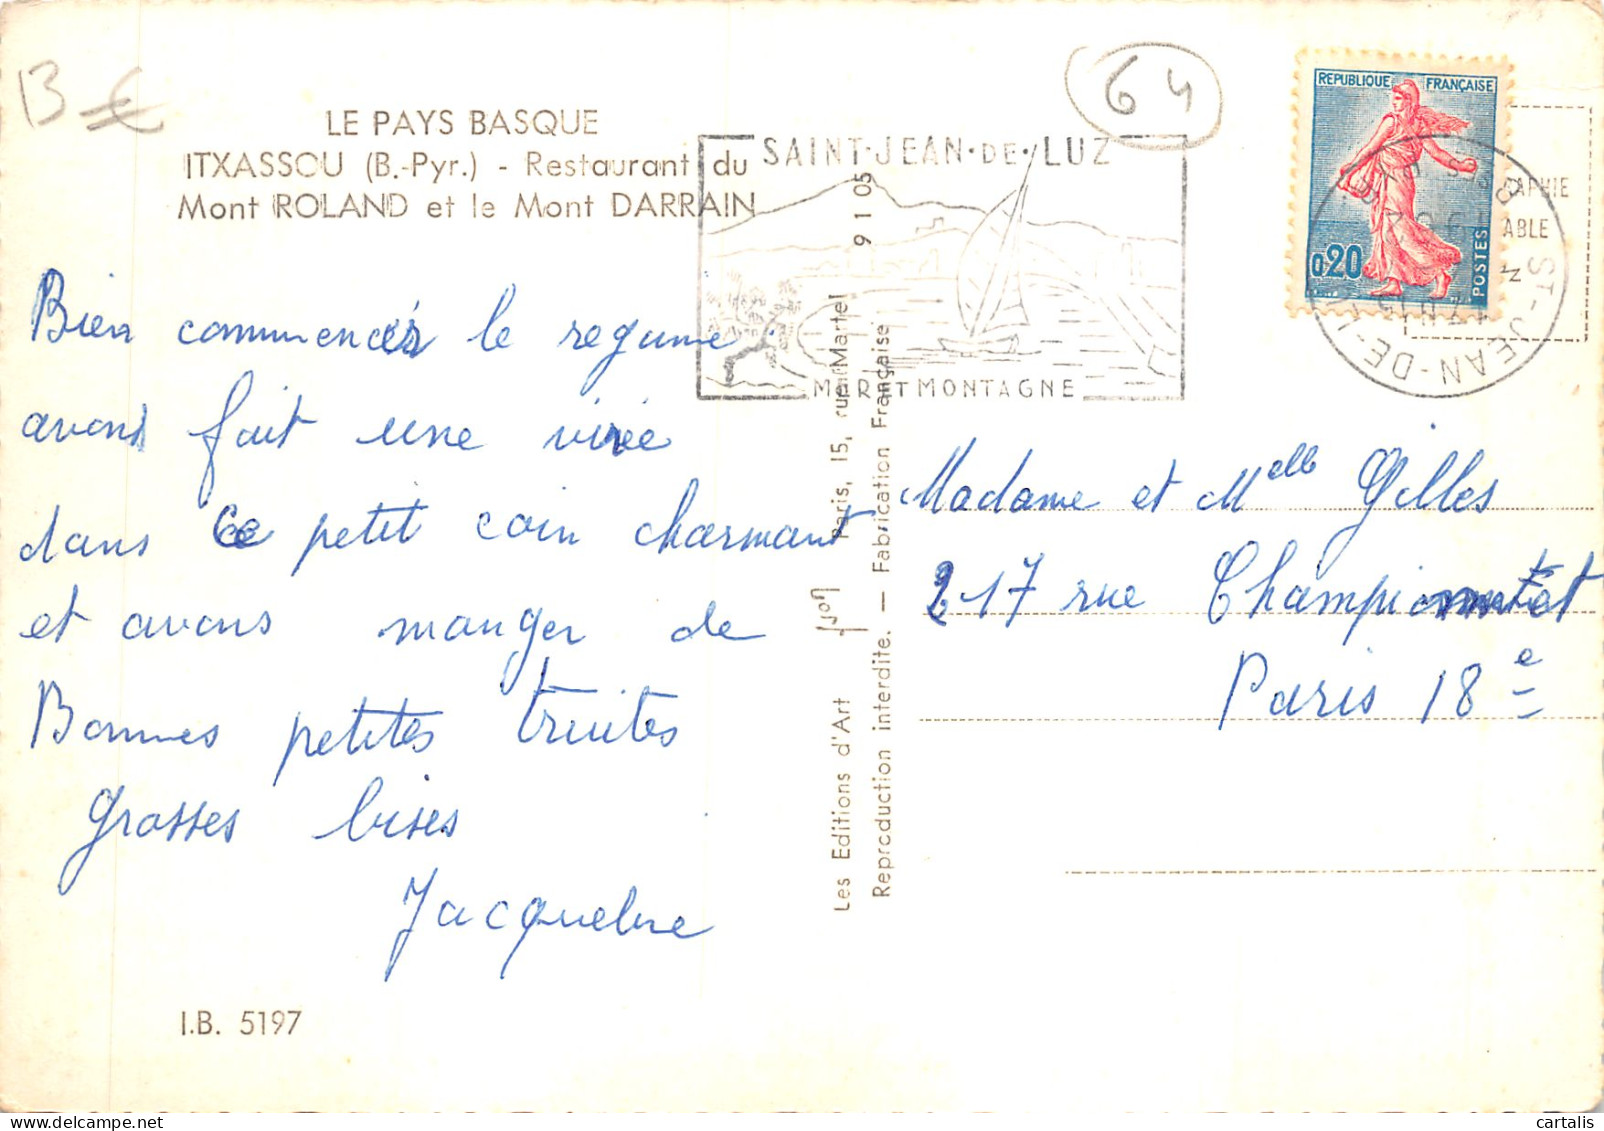 13 €
64
LE PAYS BASQUE
ITXASSOU (B.-Pyr.) - Restaurant du
Mont ROLAND et le Mont DARRAIN
SAINT·JEAN·DE·LUZ
MER ET MONTAGNE
REPUBLIQUE FRANÇAISE
0,20
POSTES
ST-JEAN-DE-LUZ
Bien commencér le regime
avons fait une virée
dans ce petit coin charmant
et avons manger de
Bonnes petites truites
grosses bises
Jacqueline
Les Editions d'Art yvon Paris, 15, rue Martel 9 1 05
Reproduction interdite. — Fabrication Française
Madame et Melle Gilles
217 rue Championnet
Paris 18e
I.B. 5197
cartalis